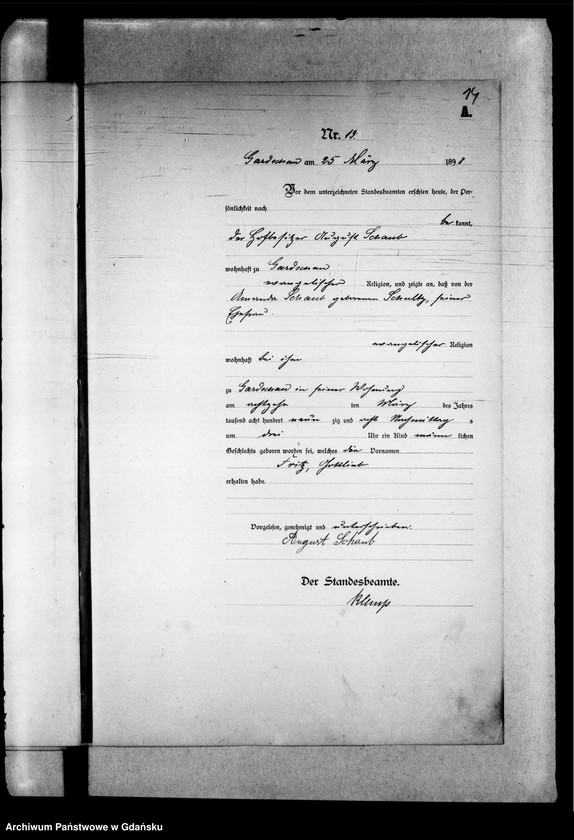 14
A.
Nr. 13.
Gardschau am 25 März 1898
Vor dem unterzeichneten Standesbeamten erschien heute, der Per-
sönlichkeit nach
be kannt,
der Hofbesitzer August Schaub
wohnhaft zu Gardschau
evangelischer Religion, und zeigte an, daß von der
Amanda Schaub geborenen Schultz, seiner
Ehefrau.
evangelischer Religion
wohnhaft bei ihm
zu Gardschau in seiner Wohnung
am achtzehn ten März des Jahres
tausend acht hundert neun zig und acht Nachmittag s
um drei Uhr ein Kind männ lichen
Geschlechts geboren worden sei, welches die Vornamen
Fritz, Gottlieb
erhalten habe.
Vorgelesen, genehmigt und unterschrieben.
August Schaub
Der Standesbeamte.
Archiwum Państwowe w Gdańsku